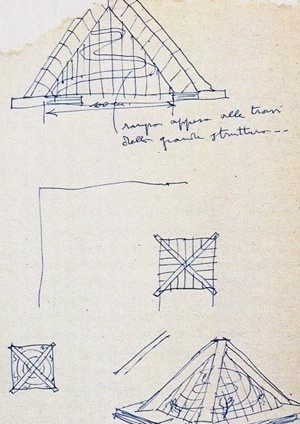 rampa appesa alle travi
della grande struttura --